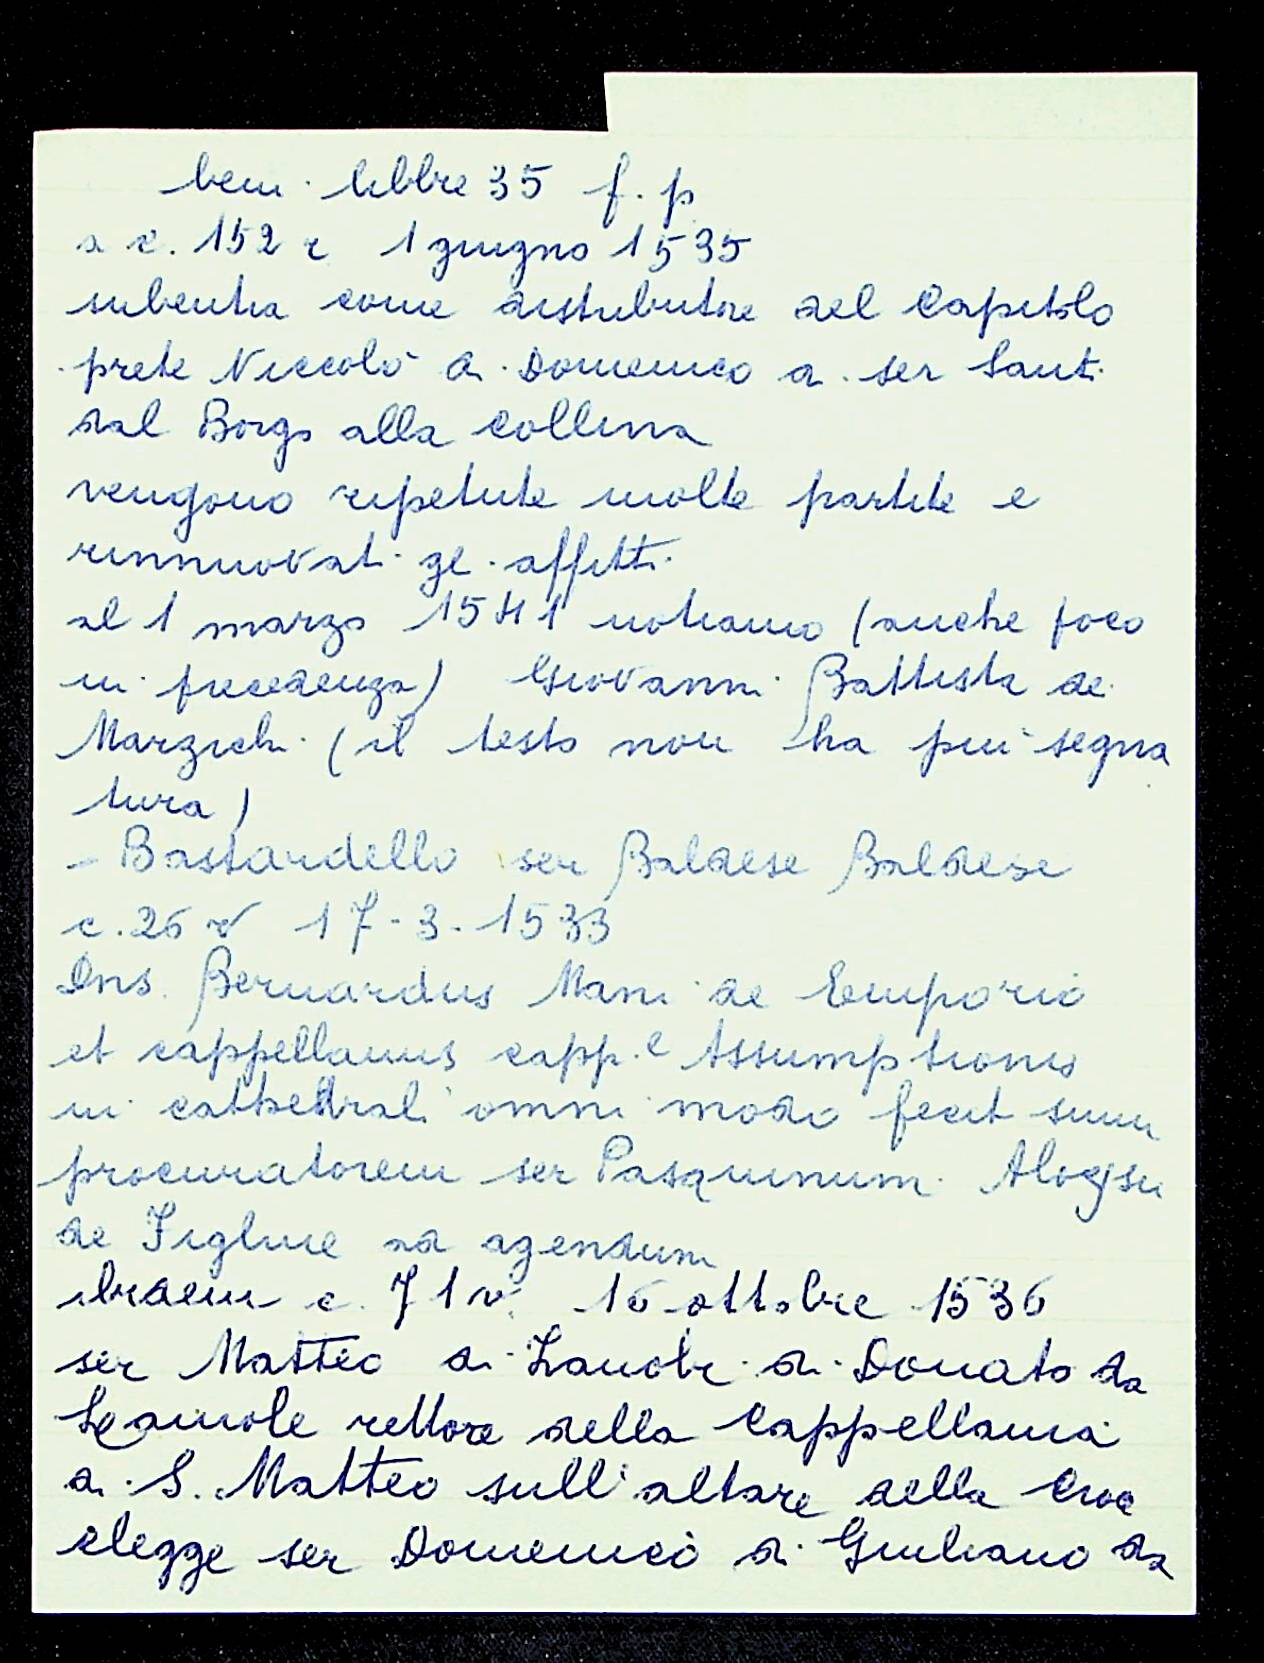 beni libbre 35 f. p
a c. 152 r 1 giugno 1535
subentra come distributore del Capitolo
prete Niccolò di Domenico di ser Santi
dal Borgo alla Collina
vengono ripetute molte partite e
rinnuovati gl. affitti
al 1 marzo 1541 notiamo (anche poco
in precedenza) Giovanni Battista de
Marzichi (il testo non ha più segna
tura)
- Bastardello ser Baldese Baldesi
c. 26 v 17-3-1533
Dns. Bernardus Mani de Emporio
et cappellanus capp.e Assumptionis
in cathedrali omni modo fecit suum
procuratorem ser Pasquinum Aloysii
de Figline ad agendum
ibidem c. 71 v. 16 ottobre 1536
ser Matteo di Zanobi di Donato da
Lamole rettore della Cappellania
di S. Matteo sull'altare della Croce
elegge ser Domenico di Giuliano da